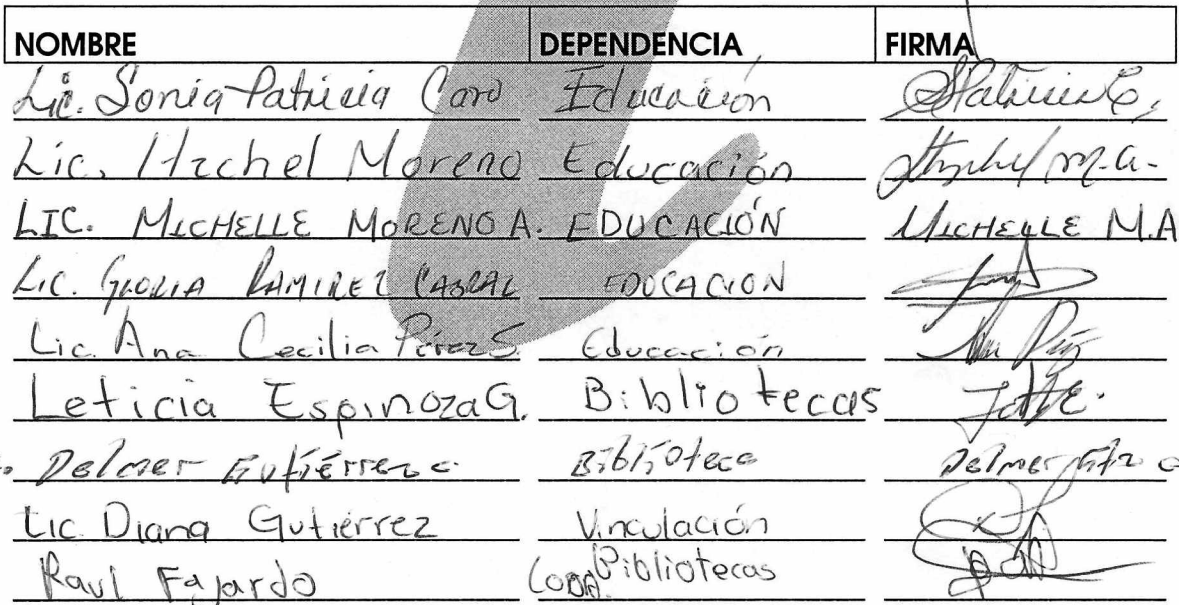 NOMBRE DEPENDENCIA FIRMA
Lic. Sonia Patricia Caro Educación SPatricia C.
Lic. Itzchel Moreno Educación Itzchel M.A.
LIC. MICHELLE MORENO A. EDUCACIÓN MICHELLE M.A
LIC. GLORIA RAMIREZ CABRAL EDUCACION
Lic. Ana Cecilia Pérez S. Educación Ana Pérez
Leticia Espinoza G. Bibliotecas
Delmer Gutiérrez c. Biblioteca Delmer Gtz c
Lic Diana Gutiérrez Vinculación
Raul Fajardo Coord. Bibliotecas